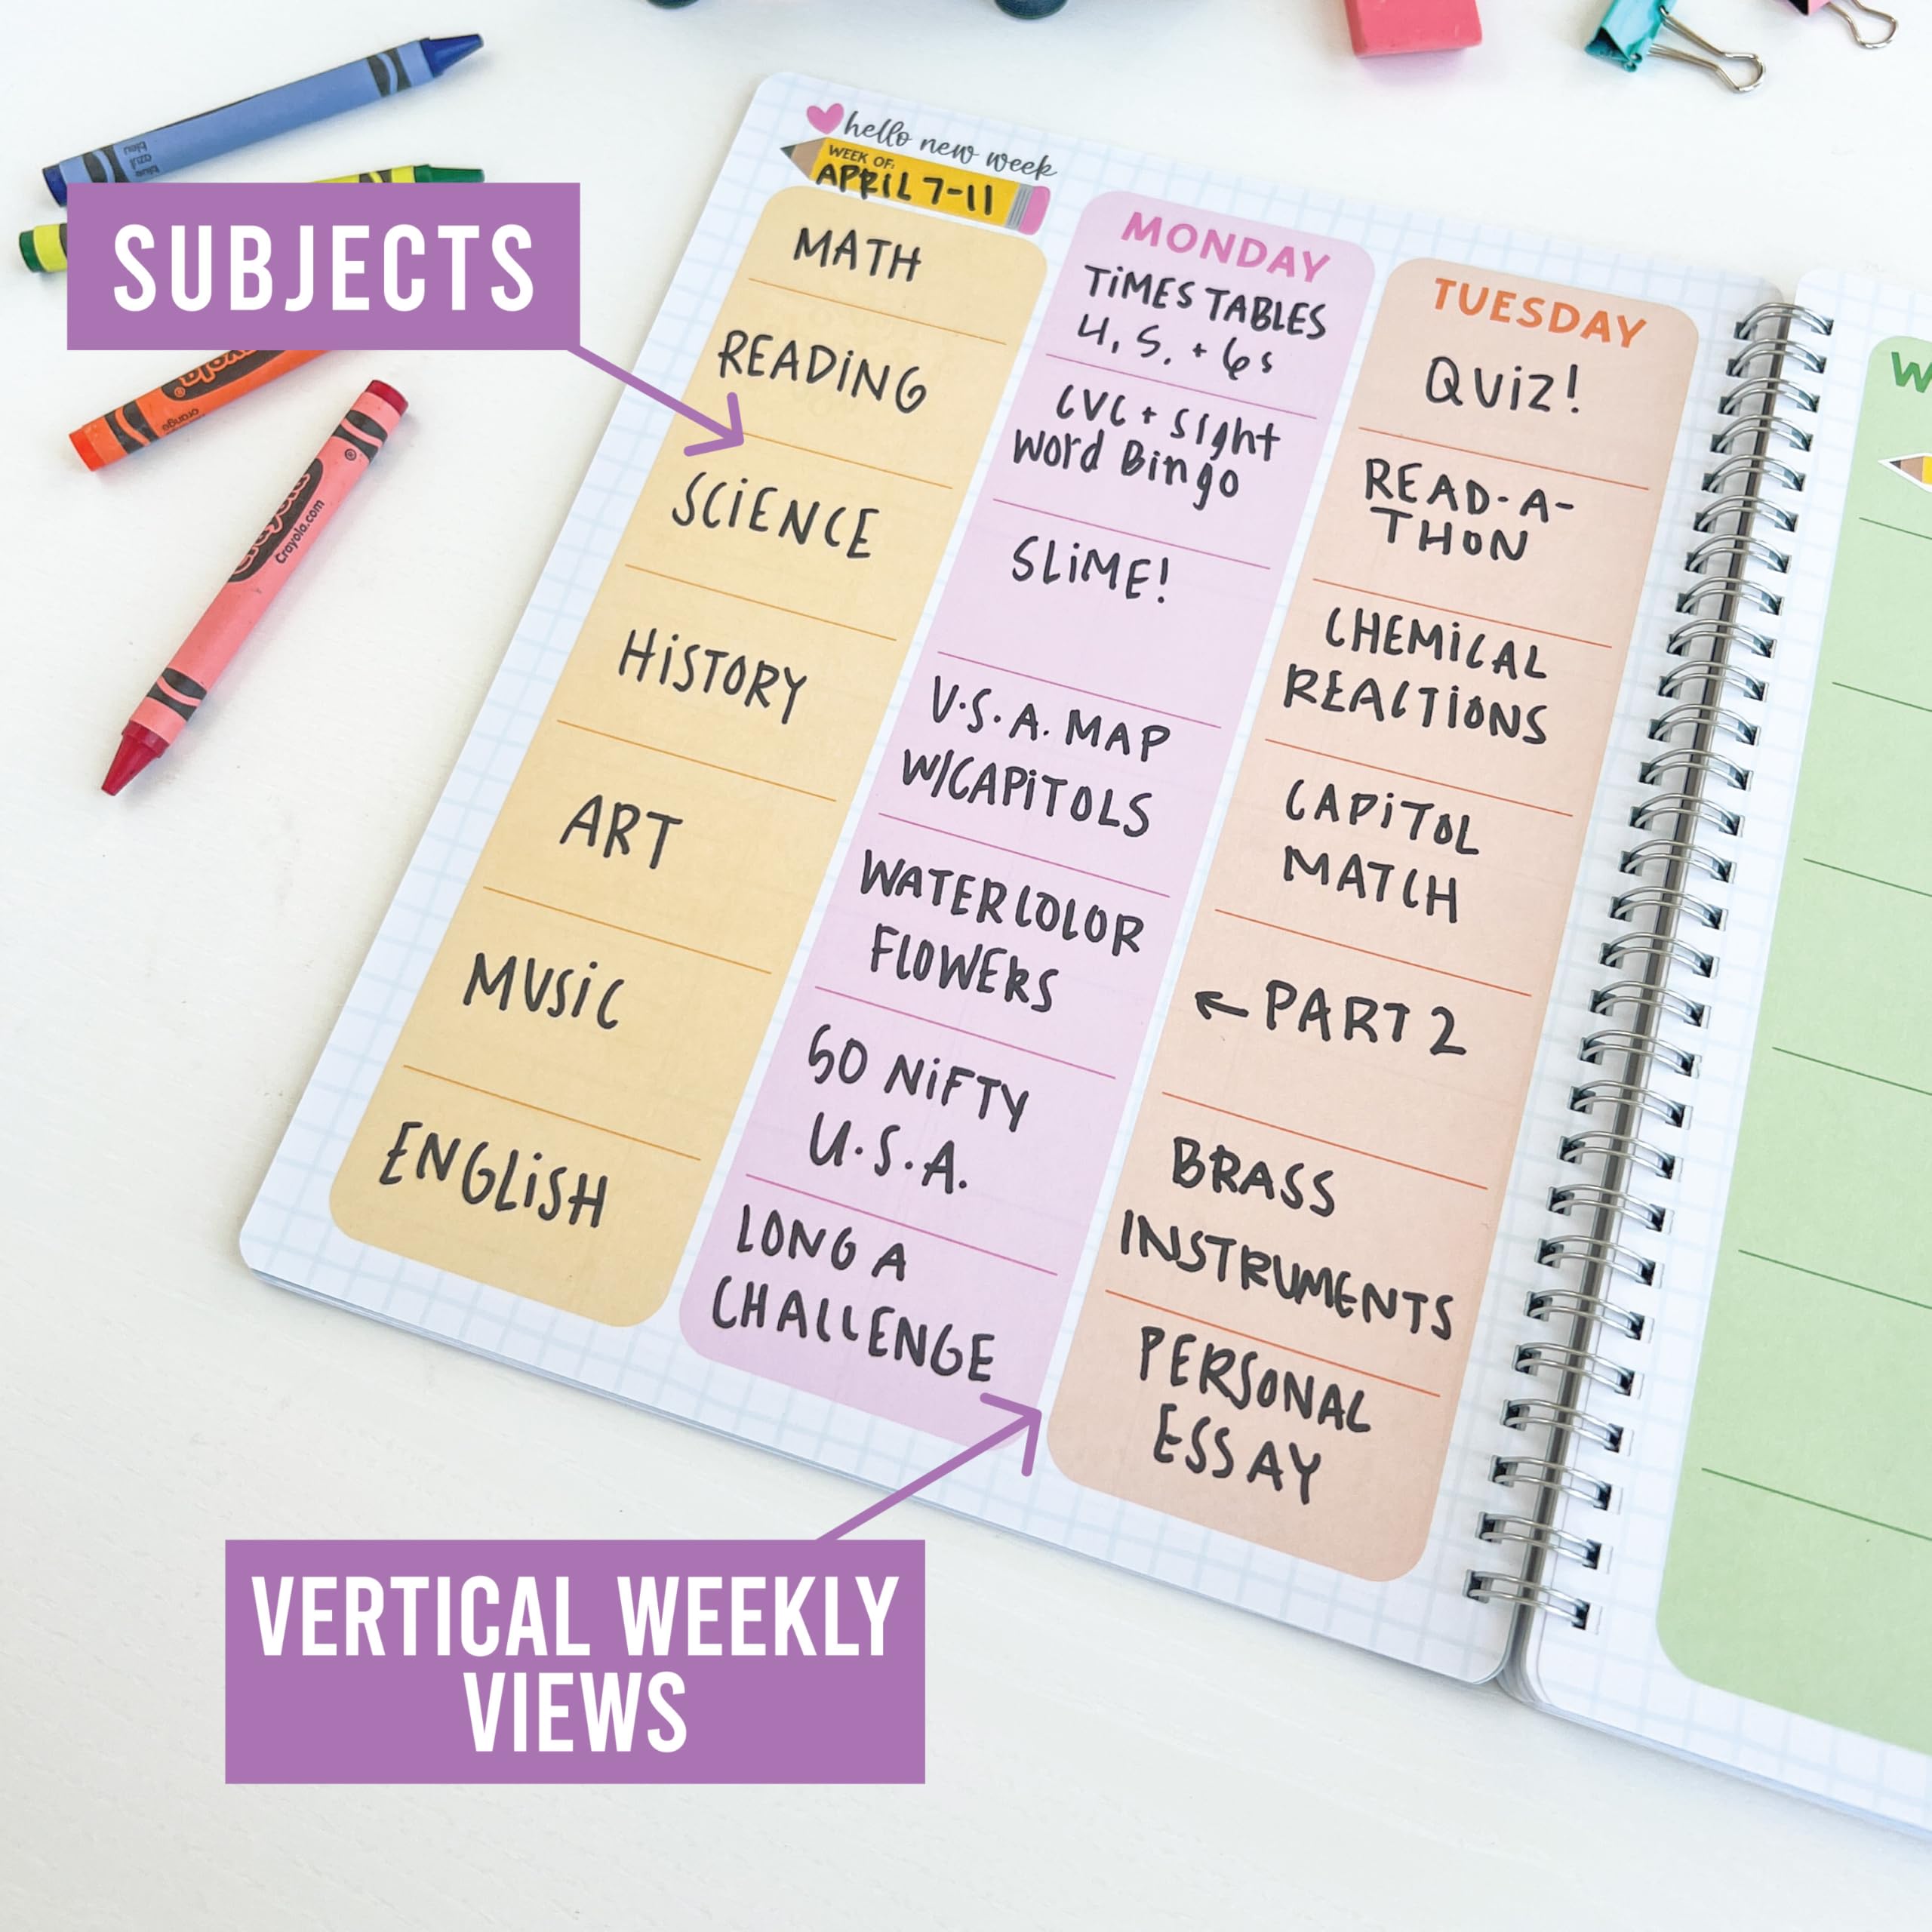 SUBJECTS
VERTICAL WEEKLY
VIEWS
hello new week
WEEK OF:
APRiL 7-11
MATH
READiNG
SCiENCE
HiSTORY
ART
MUSiC
ENGLiSH
MONDAY
TiMES TABLES
4, 5, + 6s
CVC + Sight
Word Bingo
SLiME!
U.S.A. MAP
W/CAPiTOLS
WATERCOLOR
FLOWERS
50 NiFTY
U.S.A.
LONG A
CHALLENGE
TUESDAY
QUiZ!
READ-A-
THON
CHEMiCAL
REACTiONS
CAPiTOL
MATCH
← PART 2
BRASS
INSTRUMENTS
PERSONAL
ESSAY
W
blue
azul
bleu
orange
Crayola
Crayola.com